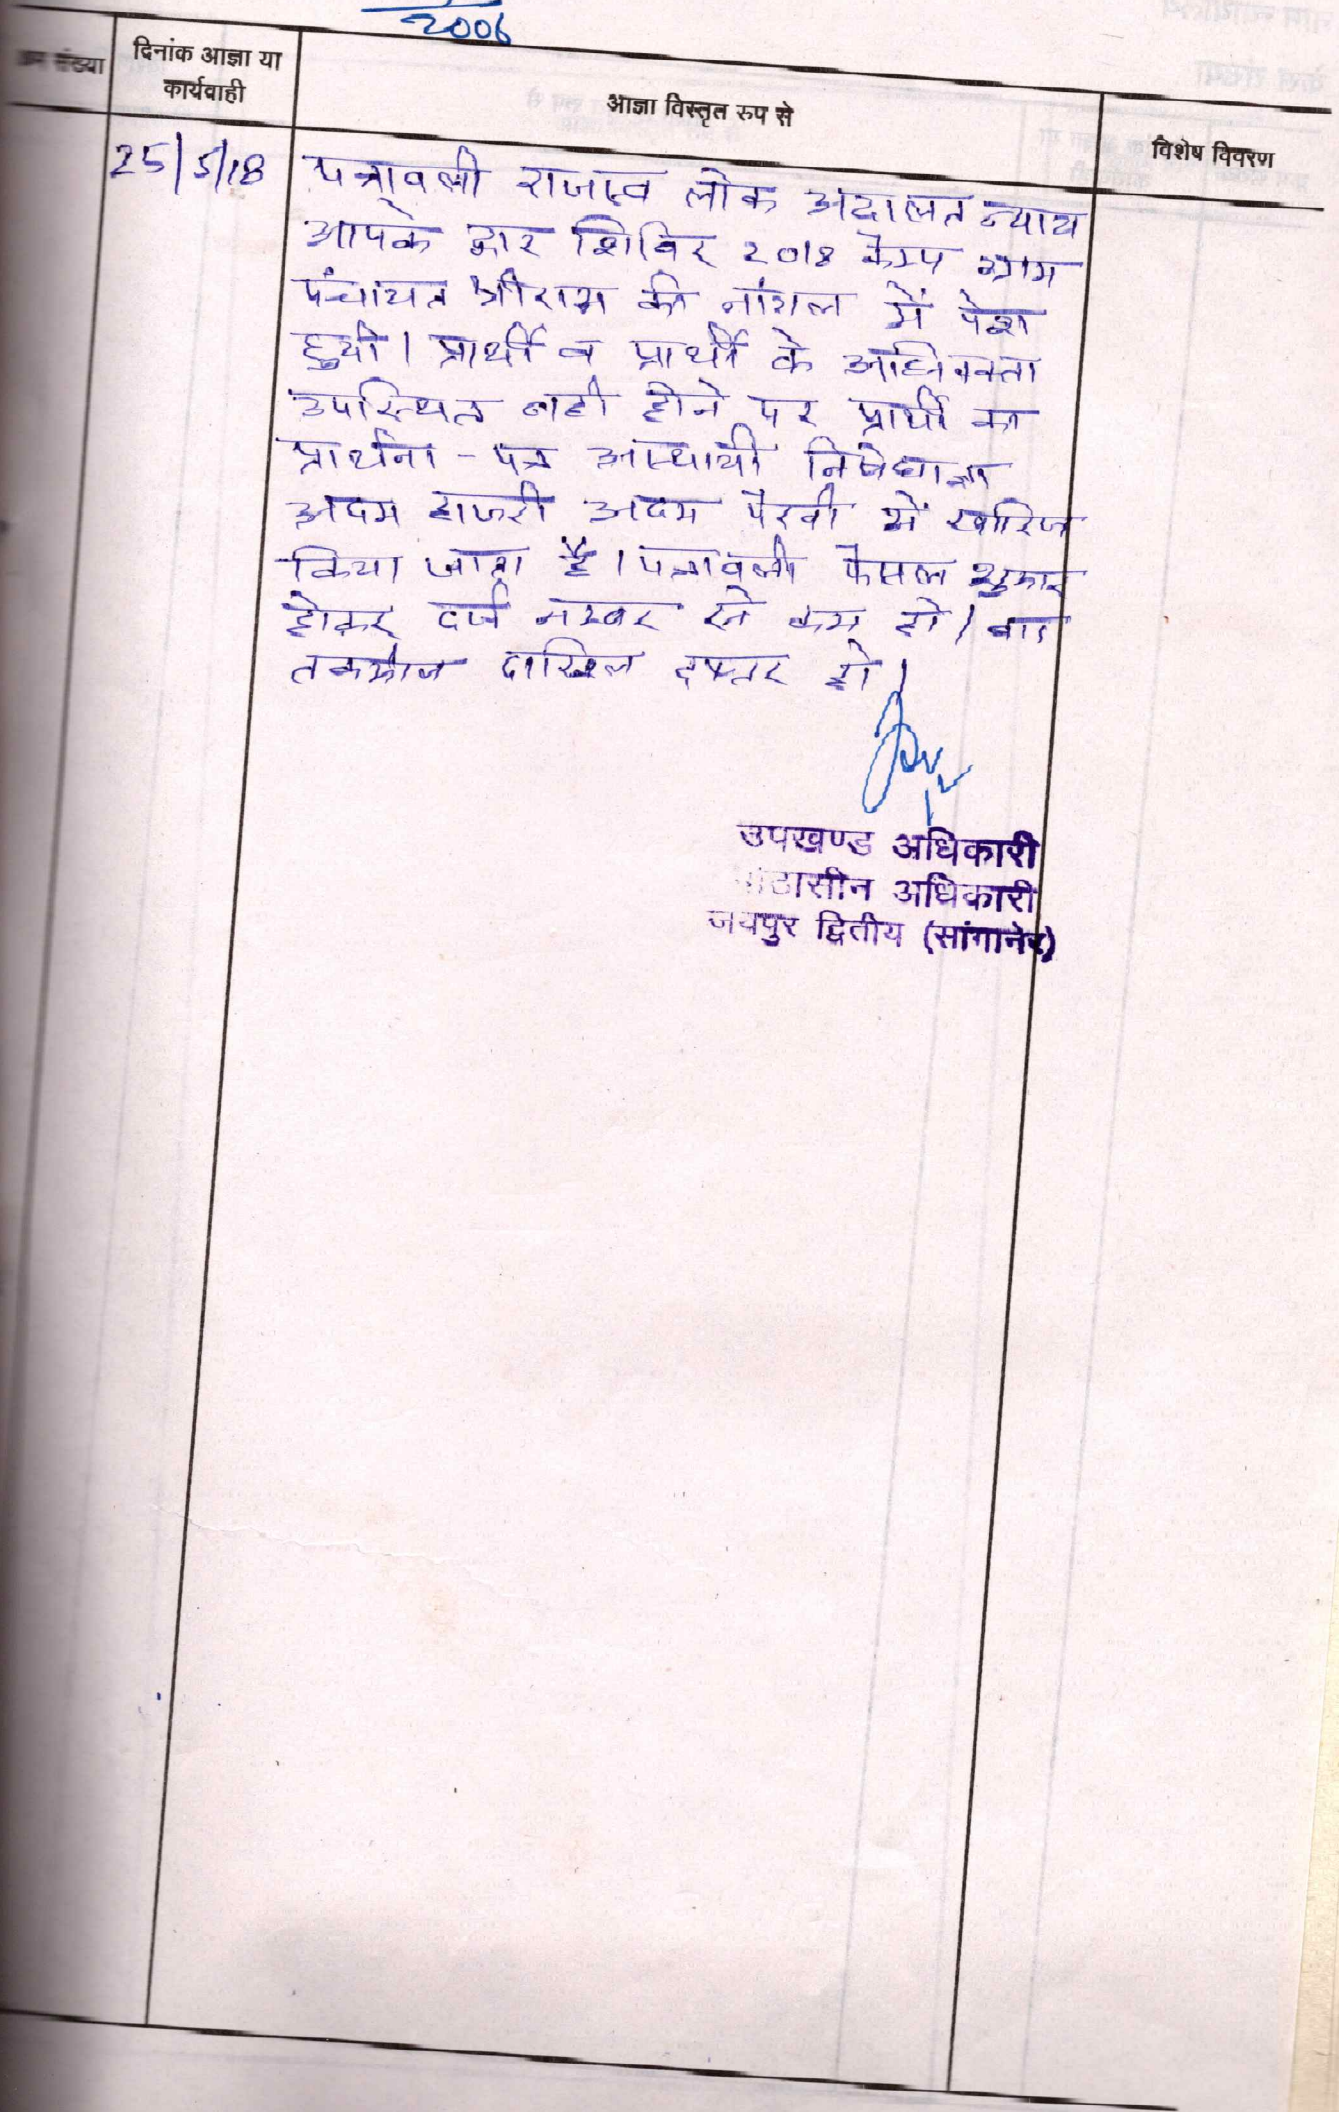 2006
क्रम संख्या
दिनांक आज्ञा या
कार्यवाही
आज्ञा विस्तृत रुप से
विशेष विवरण
25/5/18
पत्रावली राजस्व लोक अदालत न्याय
आपके द्वार शिविर 2018 केम्प ग्राम
पंचायत श्रीराम की नांगल में पेश
हुयी। प्रार्थी व प्रार्थी के अधिवक्ता
उपस्थित नही होने पर प्रार्थी का
प्रार्थना - पत्र अस्थायी निषेधाज्ञा
अदम हाजरी अदम पैरवी में खारिज
किया जाता है। पत्रावली फैसल शुमार
होकर दर्ज नम्बर से कम हो। बाद
तकमील दाखिल दफ्तर हो।
उपखण्ड अधिकारी
अधिकारी
जयपुर द्वितीय (सांगानेर)